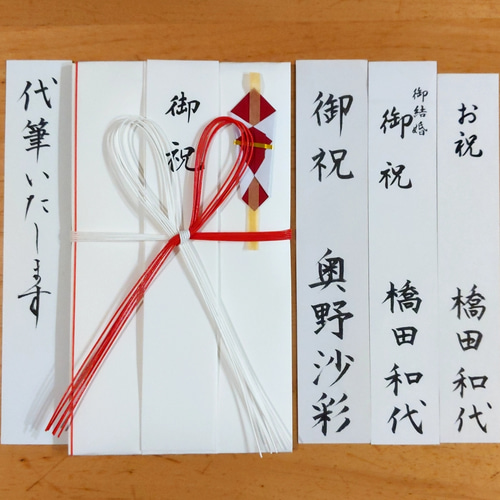 代筆いたします
御祝
御祝 奥野沙彩
御結婚
御祝 橋田和代
お祝 橋田和代